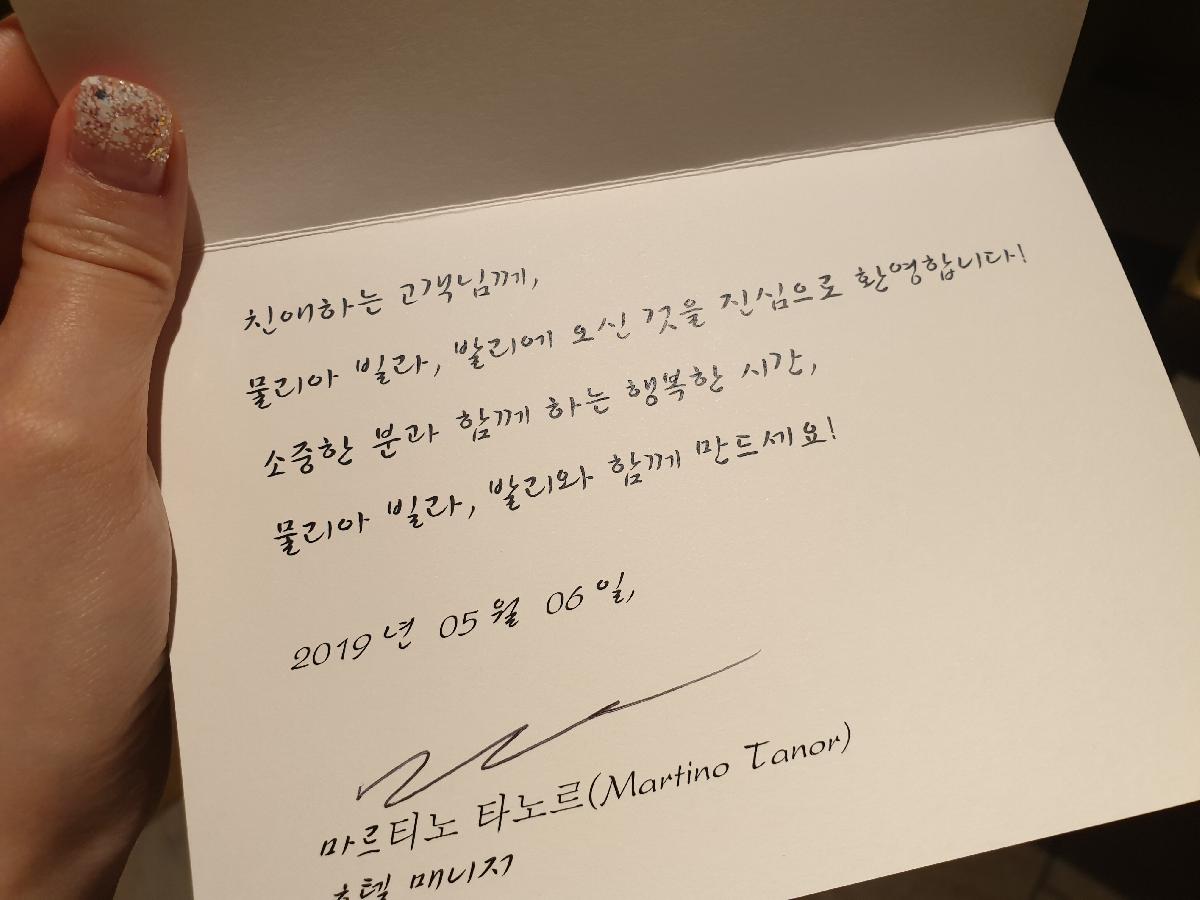 친애하는 고객님께,
물리아 빌라, 발리에 오신 것을 진심으로 환영합니다!
소중한 분과 함께 하는 행복한 시간,
물리아 빌라, 발리와 함께 만드세요!
2019년 05월 06일,
마르티노 타노르(Martino Tanor)
호텔 매니저